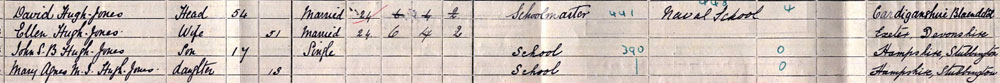 David Hugh-Jones Head 54 Married 24 6 4 2 Schoolmaster 441 Naval School 4 Cardiganshire
Ellen Hugh-Jones Wife 51 Married 24 6 4 2 Exeter, Devonshire
John S. B Hugh-Jones Son 17 Single School 390 0 Hampshire, Stubbington
Mary Agnes M. I. Hugh-Jones daughter 13 School 1 0 Hampshire, Stubbington